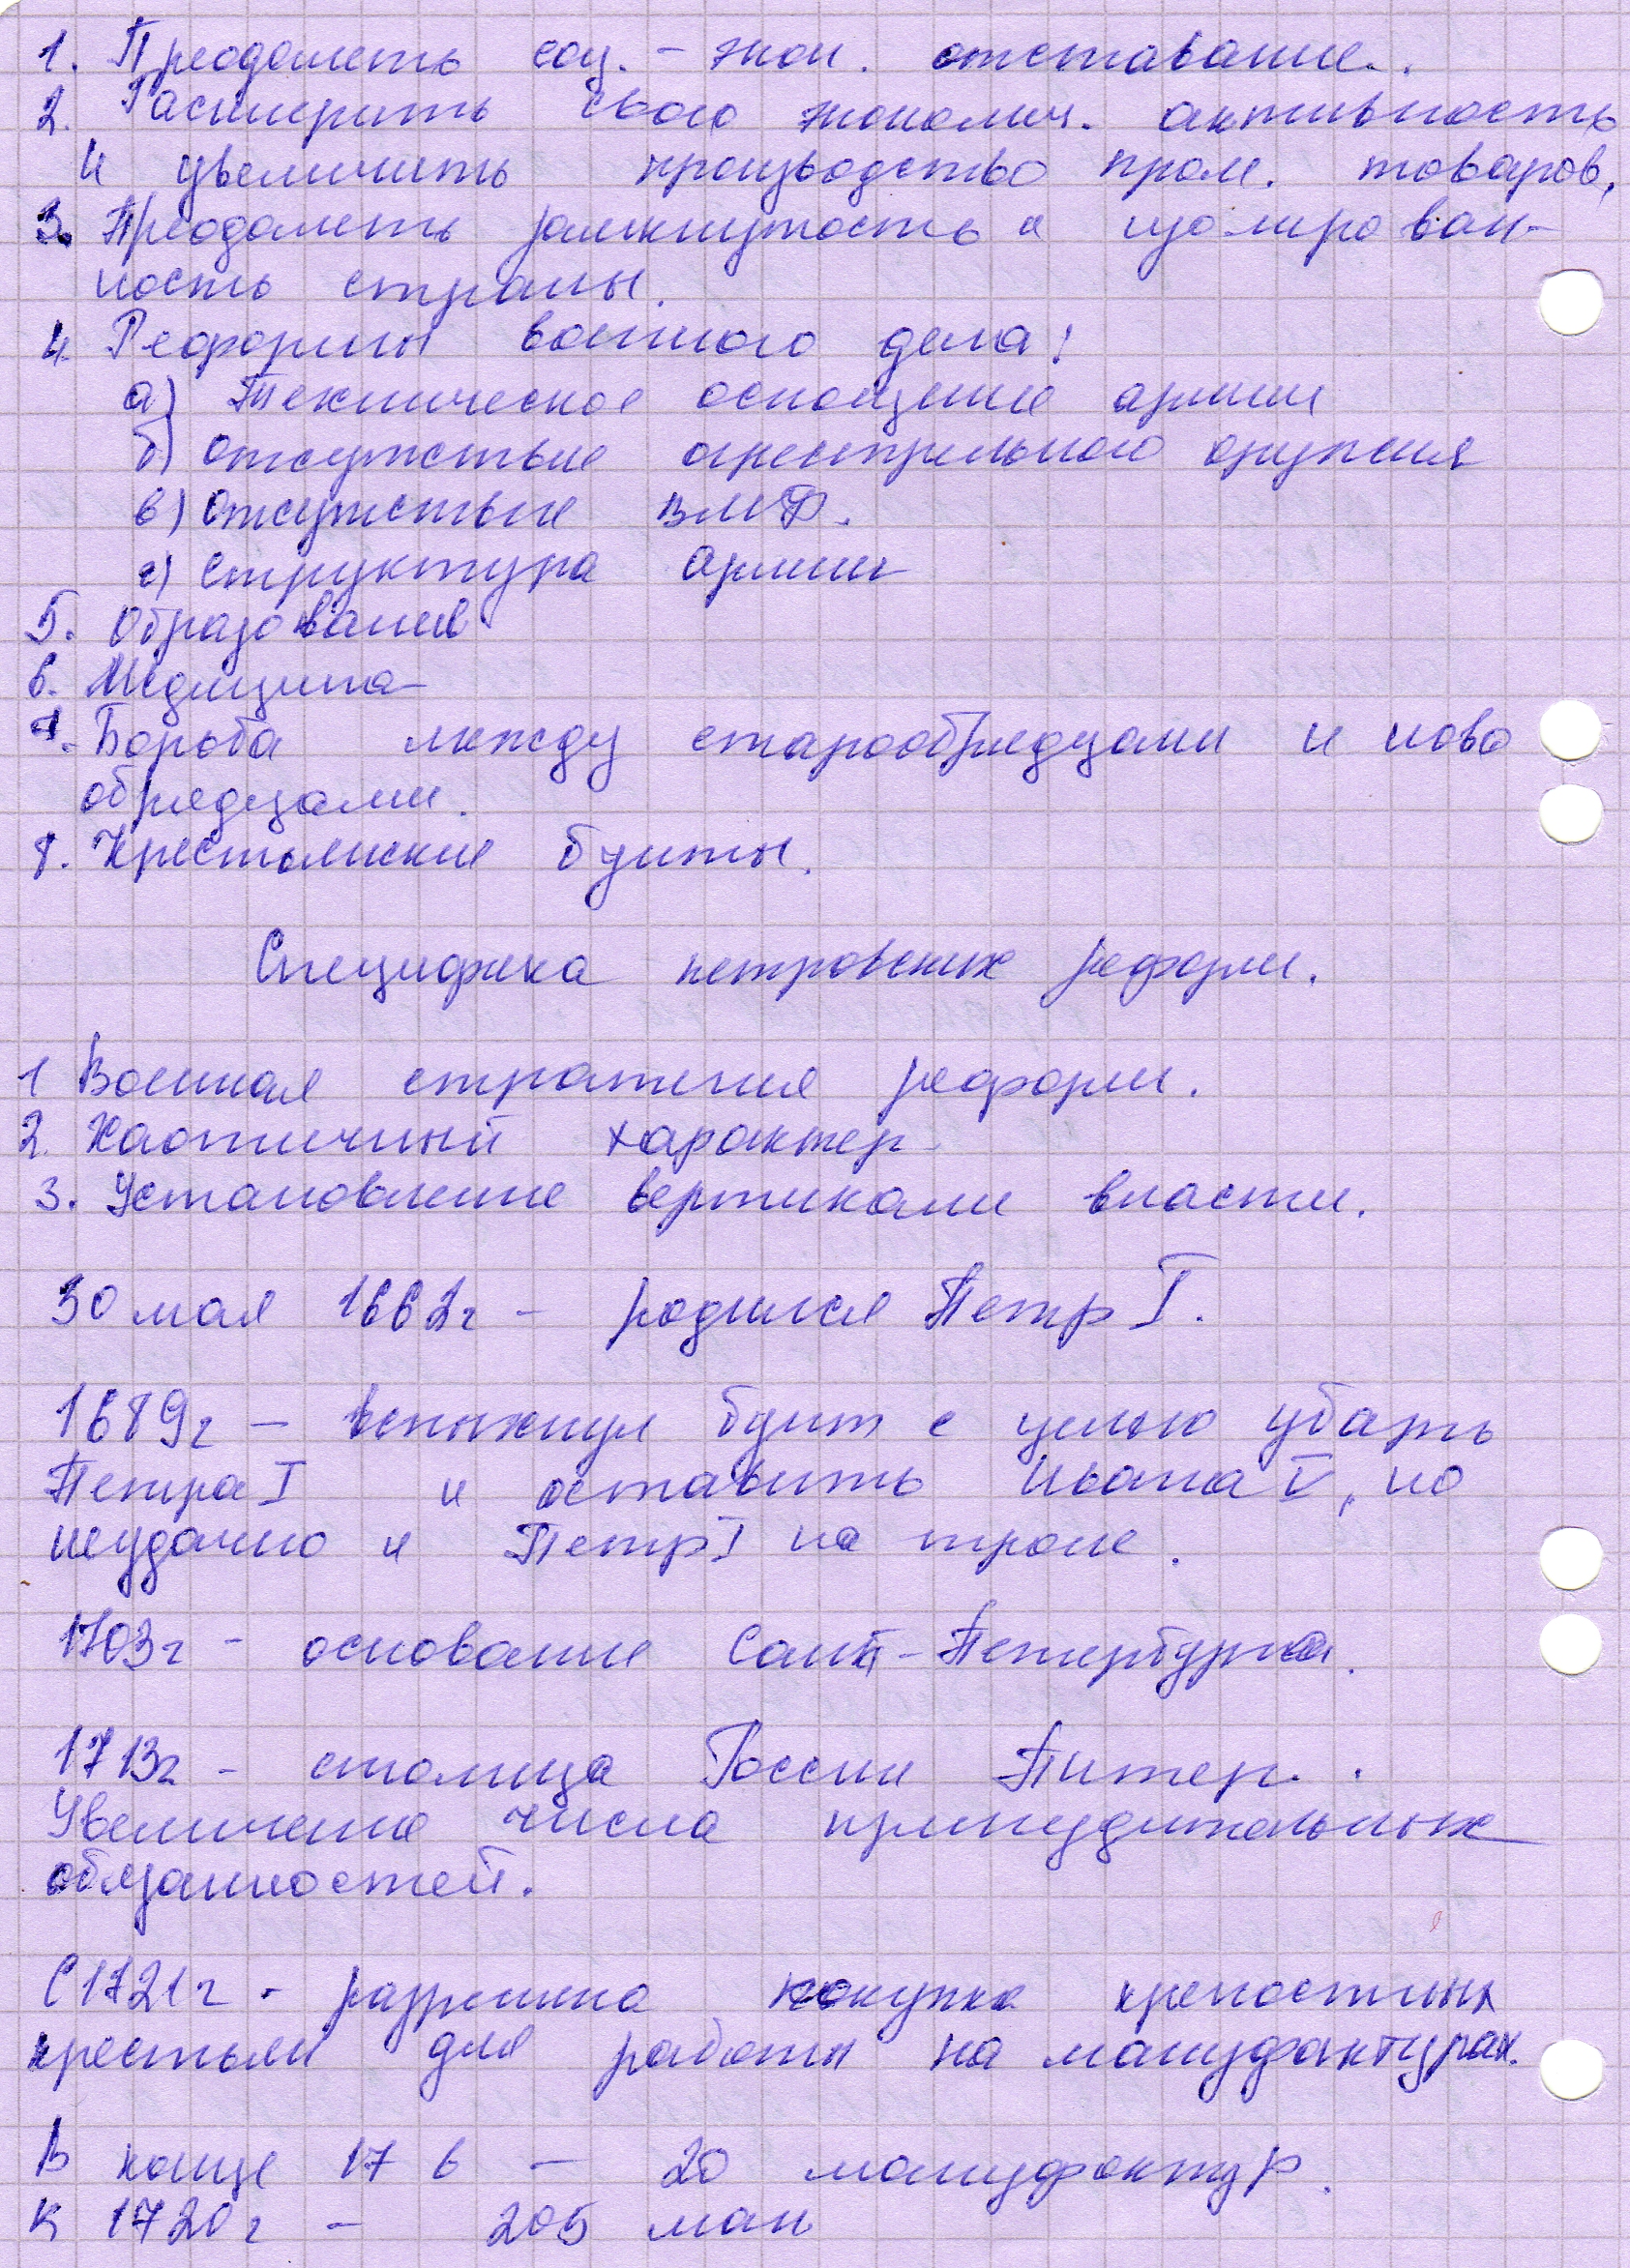 1. Преодолеть соц. - экон. отставание.
2. Расширить свою экономич. активность
и увеличить производство пром. товаров.
3. Преодолеть замкнутость и изолирован-
ность страны.
4. Реформы военного дела:
а) Техническое оснощение армии
б) отсутствие огрестрельного оружия
в) Отсутствие ВМФ.
г) Структура армии
5. Образование
6. Медицина
7. Борьба между старообрядцами и ново
обрядцами.
8. Крестьянские бунты.
Специфика петровских реформ.
1 Военная стратегия реформ.
2. Хаотичный характер
3. Установление вертикали власти.
30 мая 1662г - родился Петр I.
1689г - вспыхнул бунт с целью убать
Петра I и оставить Ивана V, но
неудачно и Петр I на троне.
1703г - основание Санкт-Петербурга.
1713г - столица России Питер.
Увеличение числа принудительных
обязанностей.
С 1721г - разрешена покупка крепостных
крестьян для работы на мануфактурах.
В конце 17 в - 20 мануфактур.
К 1720г - 205 ман